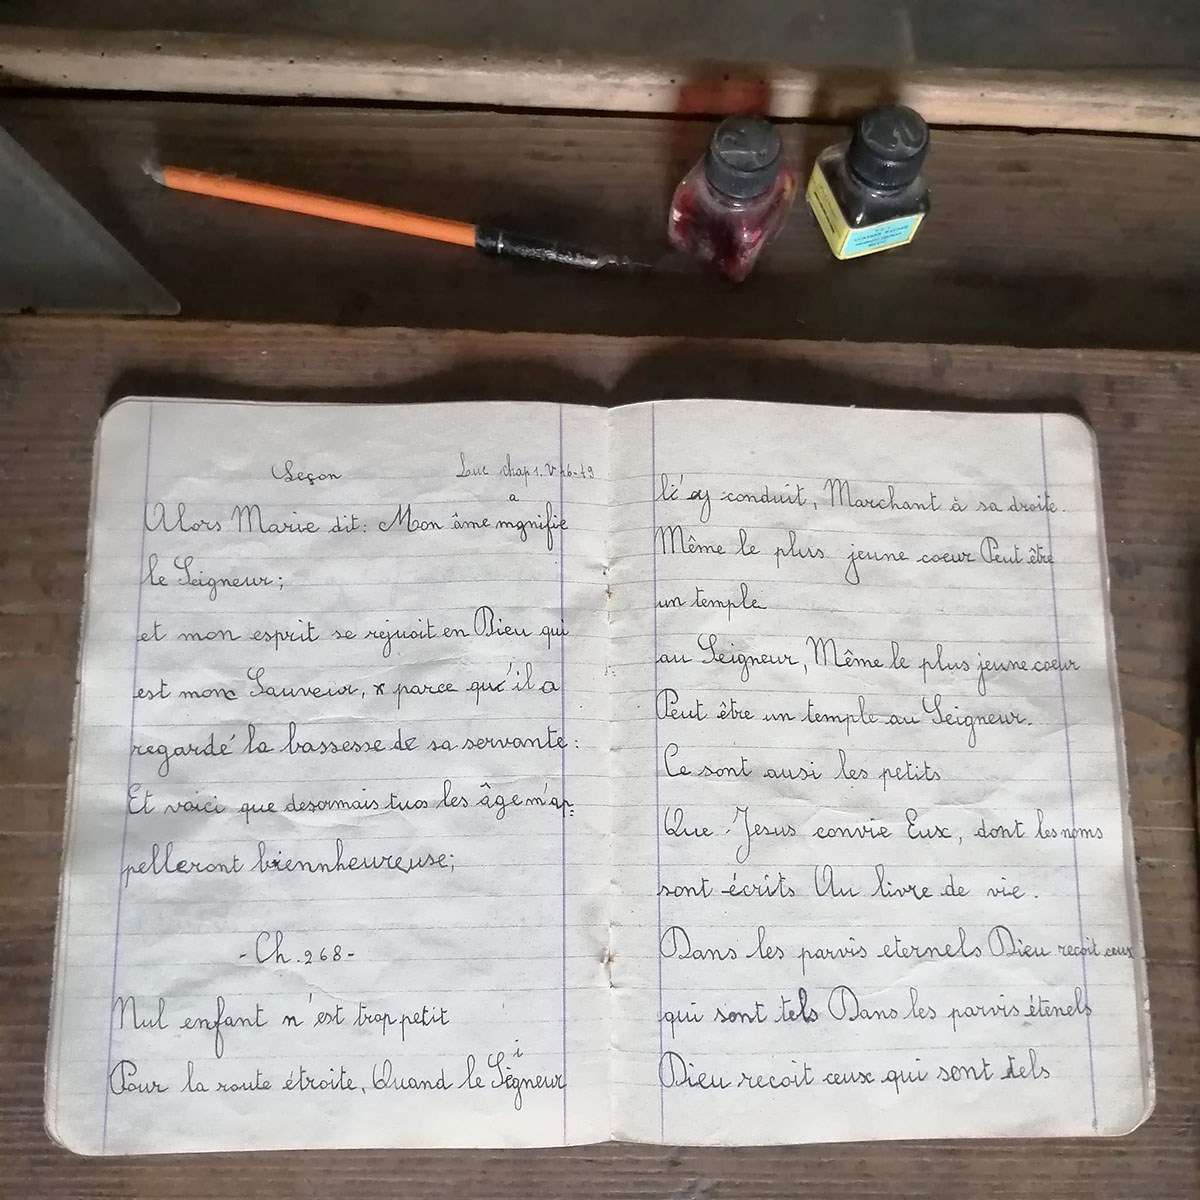 Leçon Luc chap 1. V 46-49
a
Alors Marie dit: Mon âme mgnifie
le Seigneur;
et mon esprit se rejuoit en Dieu qui
est mon Sauveur, parce qu'il a
regardé la bassesse de sa servante:
Et voici que desormais tuos les âge m'ap=
pelleront biennheureuse;
-Ch. 268-
Nul enfant n'est trop petit
i
Pour la route étroite, Quand leSégneur
conduit, Marchant à sa droite.
Même le plus jeune coeur Peut être
un temple
au Seigneur, Même le plus jeune coeur
Peut être un temple au Seigneur.
Ce sont ausi les petits
Que Jesus convie Eux, dont les noms
sont écrits Au livre de vie.
Dans les parvis eternels Dieu recoit ceux
qui sont tels Dans les parvis étenels
Dieu recoit ceux qui sont tels